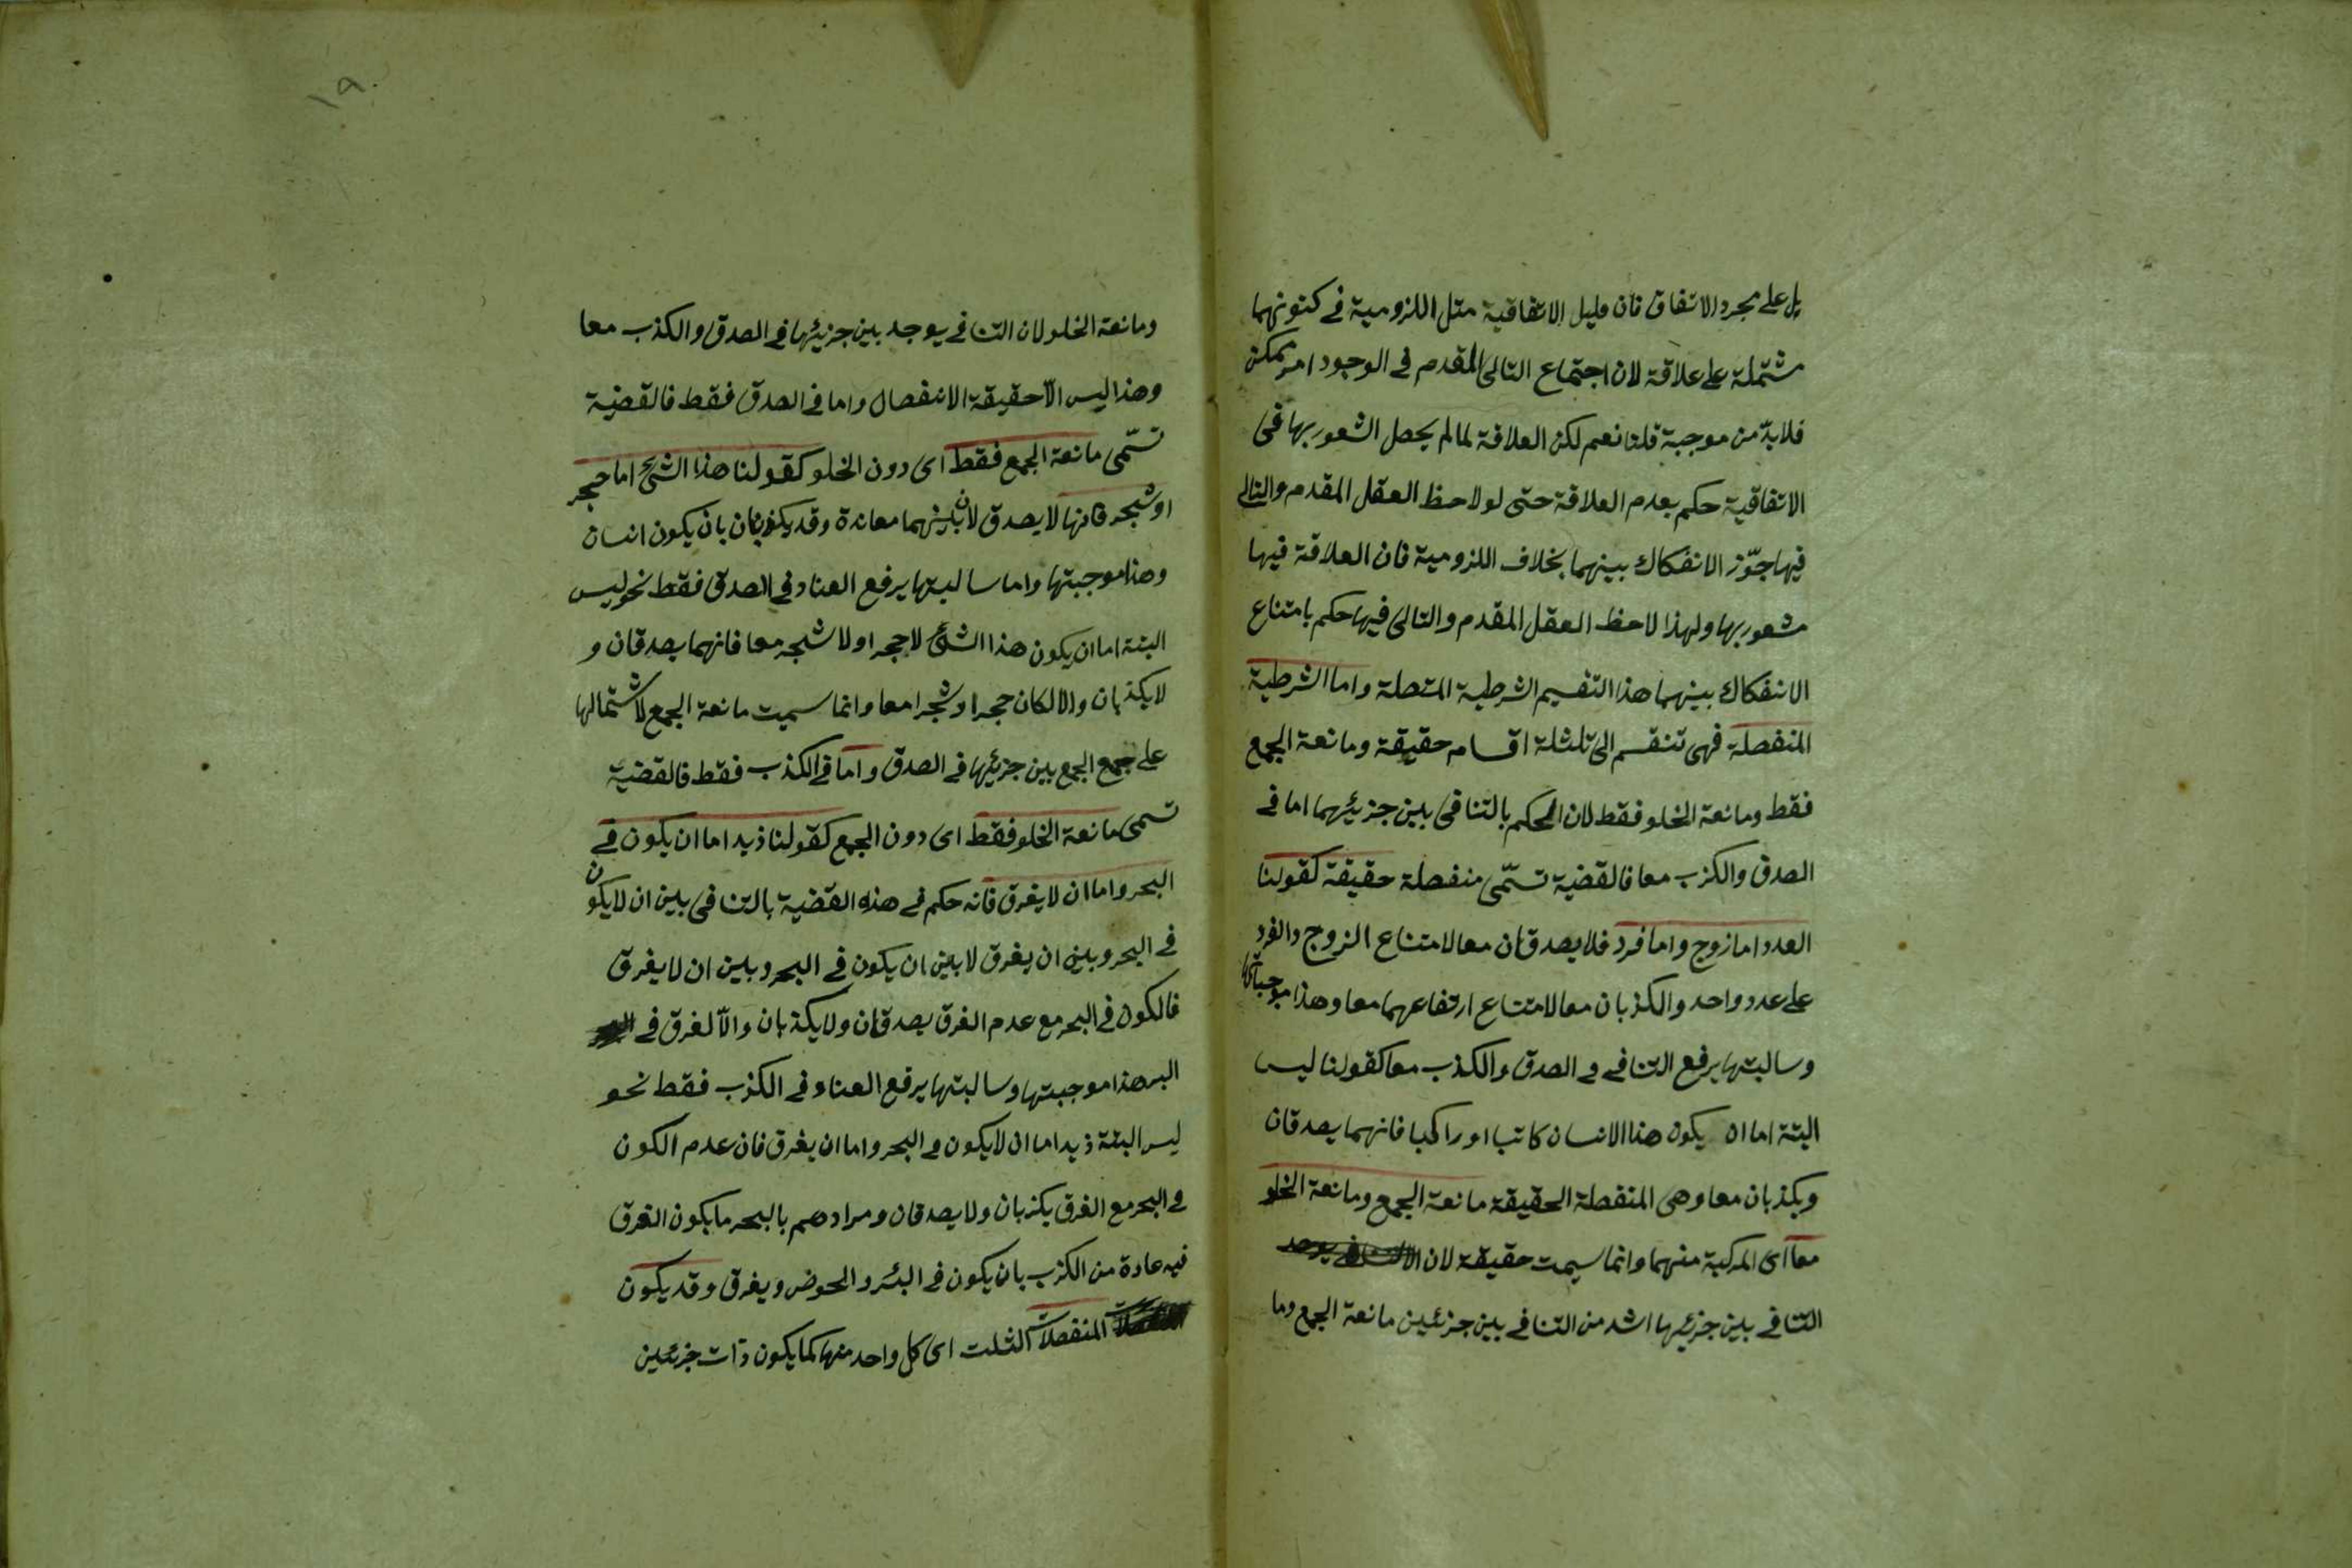 بل على مجرد الاتفاق فان قليل الاتفاقية مثل اللزومية في كنونهما
مشتملة على علاقة لان اجتماع التالى المقدم فى الوجود امر ممكن
فلابدّ من موجبة قلنا نعم لكن العلاقة لما لم يحصل الشعور بها فى
الاتفاقية حكم بعدم العلاقة حتى لو لاحظ العقل المقدم والتالى
فيها جوّز الانفكاك بينهما بخلاف اللزومية فان العلاقة فيها
مشعور بها ولهذا لاحظ العقل المقدم والتالى فيها حكم بامتناع
الانفكاك بينهما هذا التقسيم الشرطية المتصلة واما الشرطية
المنفصلة فهى تنقسم الى ثلثلة اقسام حقيقة ومانعة الجمع
فقط ومانعة الخلو فقط لان الحكم بالتنافى بين جزئيهما اما فى
الصدق والكزب معا فالقضية تسّمى منفصلة حقيقة كقولنا
العدد اما زوج واما فرد فلا يصدقان معا لامتناع الزوج والفرد
على عدد واحد والكذبان معا لامتناع ارتفاعهما معا وهذا موجباتها
وسالبتها يرفع التنافى فى الصدق والكذب معا كقولنا ليس
البتة اما ان يكون هذا الانسان كاتبا او راكبا فانهما يصدقان
ويكذبان معا وهى المنفصلة الحقيقة مانعة الجمع ومانعة الخلو
معا اى المركبة منهما وانما سيمت حقيقة لان
التنافى بين جزئيها اشد من التنافى بين جزئين مانعة الجمع وما
١٩
ومانعة الخلو لان التنافى يوجد بين جزئيها فى الصدق والكذب معا
وهذا ليس الّا حقيقة الانفصال واما فى الصدق فقط فالقضية
تسّمى مانعة الجمع فقط اى دون الخلو كقولنا هذا الشئ اما حجر
او شجر فانها لا يصدق لان بينهما معاندة وقد يكذبان بان يكون انسان
وهذا موجبتها واما سالبتها يرفع العناد فى الصدق فقط نحو ليس
البتة اما ان يكون هذا الشئ لا حجر او لا شجر معا فانهما يصدقان و
لا يكذبان والا لكان حجرا او شجرا معا وانما سميت مانعة الجمع لاشتمالها
على جمع الجمع بين جزئيها فى الصدق واما فى الكذب فقط فالقضية
تسمى مانعة الخلو فقط اى دون الجمع كقولنا ذيد اما ان يكون فى
البحر واما ان لا يغرق فانه حكم فى هذه القضية بالتنافى بين ان لا يكون
فى البحر وبين ان يغرق لا بين ان يكون فى البحر وبين ان لا يغرق
فالكون فى البحر مع عدم الغرق يصدقان ولا يكذبان والّا لغرق فى
البر هذا موجبتها وسالبتها يرفع العناد فى الكذب فقط نحو
ليس البتة ذيد اما ان لا يكون فى البحر واما ان يغرق فان عدم الكون
فى البحر مع الغرق يكذبان ولا يصدقان ومرادهم بالبحر ما يكون الغرق
فيه عادة من الكزب بان يكون فى البئر والحوض ويغرق وقد يكون
المنفصلات الثلت اى كل واحد منها كما يكون ذات جزئين